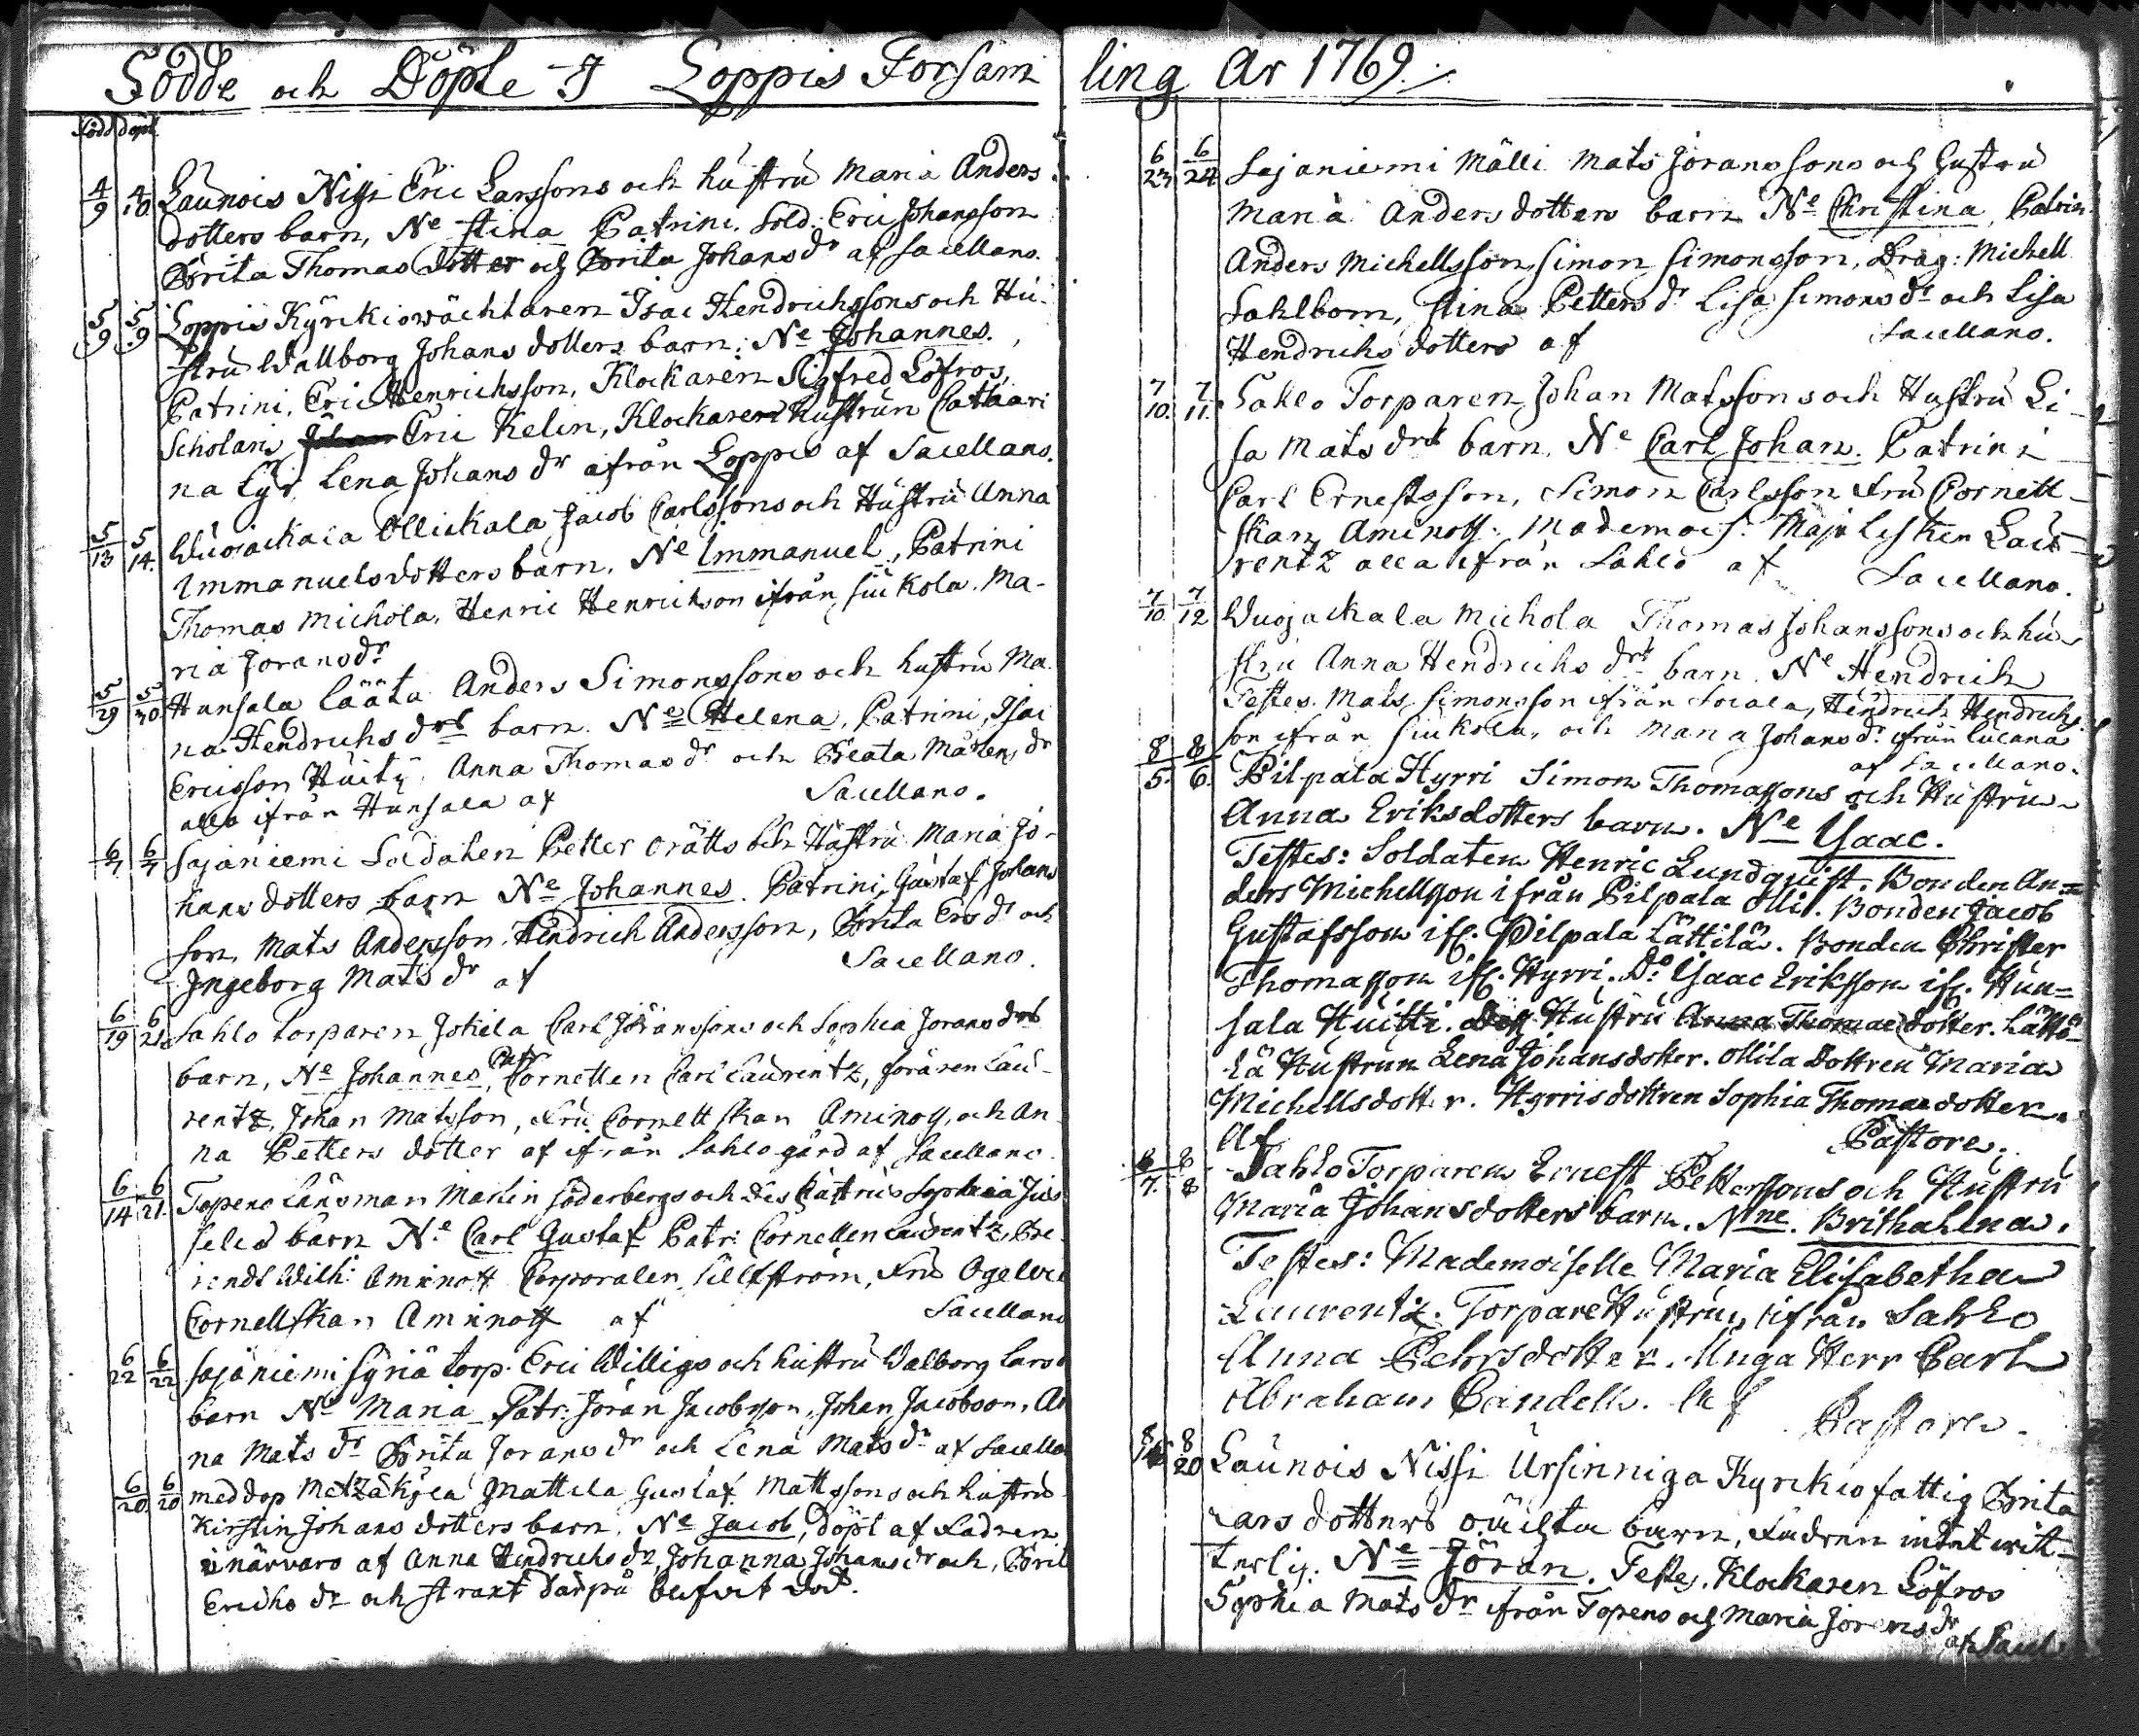 Födde och Döpte I Loppis Forsam
ling År 1769.
Född döpt
4/9 4/10. Launois Nissi Eric Larssons och hustru Maria Anders
dotters barn, Ne Stina Patrini. Sold. Eric Johansson
Brita Thomas dotter och Brita Johans dr af Sacellano.
5/9 5/9 Loppis Kyrkiowächtaren Isac Hendrichssons och Hu-
stru Wallborg Johans dotters barn. Ne Johannes.
Patrini, Eric Henrichsson, Klockaren Sigfred Löfros,
Scholaris Eric Kelin, Klockaren Hustrun Cathari
na Lyr, Lena Johans dr ifrån Loppis af Sacellano.
5/13 5/14. Ollickala Jacob Carlssons och Hustru Anna
Immanuelsdotters barn. Ne Immanuel, Patrini
Thomas Michola, Henric Henrickson ifrån Siukola. Ma-
ria Jorans dr
5/29 5/30. Hunsala Läätä Anders Simonssons och hustru Ma
na Hendrichs drs barn. Ne Helena, Patrini, Isac
Ericsson Huiti, Anna Thomas dr och Beata Mårtens dr
alla ifrån Hunsala af Sacellano.
6/7 6/7 Sajaniemi Soldaten Petter Orätts och Hustru Maria Jo-
hans dotters barn Ne Johannes. Patrini, Gustaf Johans
son, Mats Andersson, Hendrich Andersson, Brita Ers dr och
Ingeborg Mats dr af Sacellano.
6/19 6/21. Sahlo torparen Jokela Carl Jöranssons och Sophia Jorans drs
barn, Ne Johannes, Patr Cornetten Carl Laurentz, Lau-
rentz, Johan Matsson, Fru Cornettskan Aminoff, och An
na Petters dotter af ifrån Sahlo gård af Sacellano.
6/14 6/21. Topeno Länsman Martin Söderbergs och des Hustrus Sophia
barn Ne Carl Gustaf Patr: Cornetten Laurentz,
Wilh: Aminoff Corporalen Fru
Cornettskan Aminoff af Sacellano
6/22 6/22 Sajäniemi Syriä torp. Eric Willigs och hustru Walborg Lars
barn Ne Maria Patr: Jöran Jacobsson, Johan Jacobson, An
na Mats dr Brita Jorans dr och Lena Mats dr af Sacella
6/20. 6/20 Mattila Gustaf Mattssons och hustru
Kirstin Johans dotters barn. Ne Jacob, döpt af Fadren
i närvaro af Anna Hendrichs dr, Johanna Johans dr och, Brit
Erichs dr och straxt därpå
6/23 6/24 Sajaniemi Mälli Mats Joranssons och Hustru
Maria Anders dotters barn Ne Christina, Patrin.
Anders Michellsson, Simon Simonsson, Drag: Michell
Sahlbom, Stina Petters dr Lisa Simons dr och Lisa
Hendrichs dotters af Sacellano.
7/10. 7/11. Sahlo Torparen Johan Matssons och Hustru Li-
sa Mats drs barn. Ne Carl Johan. Patrini
Carl Ernestsson, Simon Carlsson Fru Cornett-
skan Aminoff. Mademois. Maja Lisken Lau-
rentz alla ifrån Sahlo af Sacellano.
7/10. 7/12 Wuojackala Michola Thomas Johanssons och hu-
stru Anna Hendrichs drs barn Ne Hendrich
Testes. Mats Simonsson ifrån Hendrich Hendrichs-
son ifrån Siukola, och Maria Johans dr ifrån
af Sacellano.
8/5. 8/6. Pilpala Hyrri Simon Thomassons och Hustrun
Anna Eriksdotters barn. Ne Ysaac.
Testes: Soldaten Henric Lundquist. Bonden An=
ders Michellsson ifrån Pilpala Olli. Bonden Jacob
Gustafsson ifr. Pilpala Lättilä. Bonden Christer
Thomasson ifr. Hyrri. Do Ysaac Eriksson ifr. Hun=
sala Huitti. Hustru Anna Thomae dotter. Lätti-
lä Hustrun Lena Johansdotter. Ollila Dottren Maria
Michellsdotter. Hyrris dottren Sophia Thomae dotter.
Af Pastore.
8/7. 8/8 Sahlo Torparen Ernest Pettersons och Hustru
Maria Johansdotters barn. Nne. Brithalena.
Testes: Mademoiselle Maria Elisabetha
Laurentz. Torpare Hustrun ifrån Sahlo
Anna Pehrsdotter. Unga Herr Carl
Abraham Candelb. Af Pastore.
8/20 Launois Nissi Ursinniga Kyrkiofattig Brita
Lars dotters oäckta barn, Fadren intet wit-
terlig. Ne Jöran. Testes. Klockaren Löfros
Sophia Mats dr ifrån Topeno och Maria Jorans dr
af Sacel